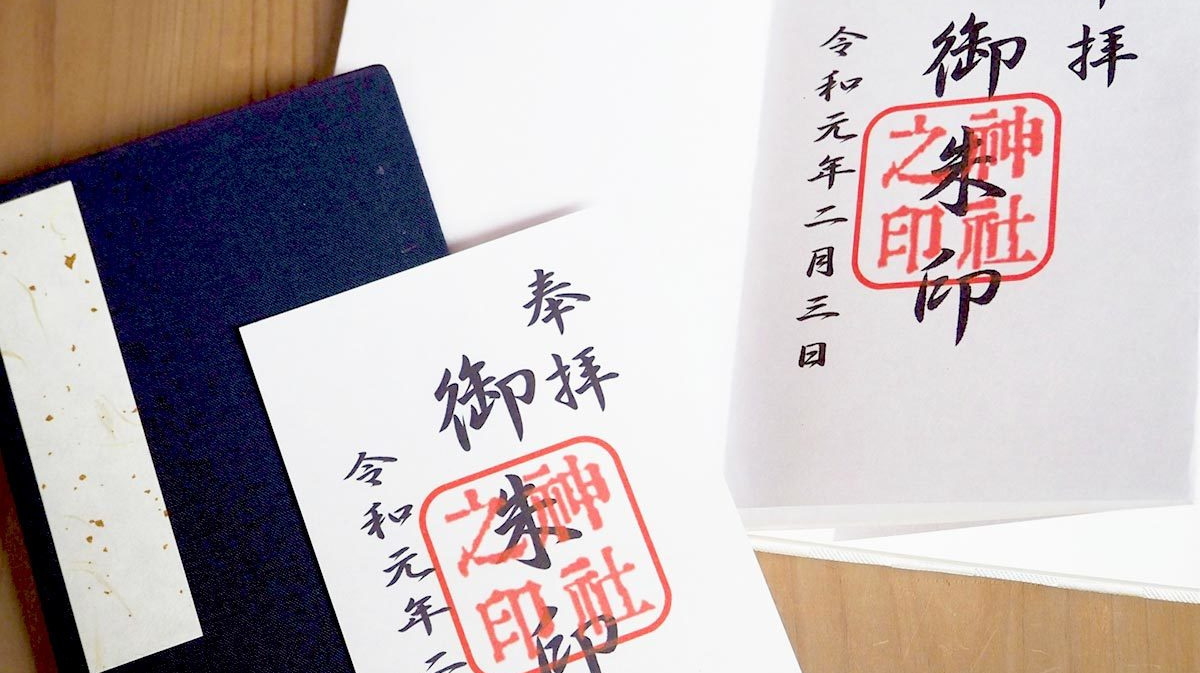 奉拝
御朱印
神社之印
令和元年二
拝
御朱印
神社之印
令和元年二月三日